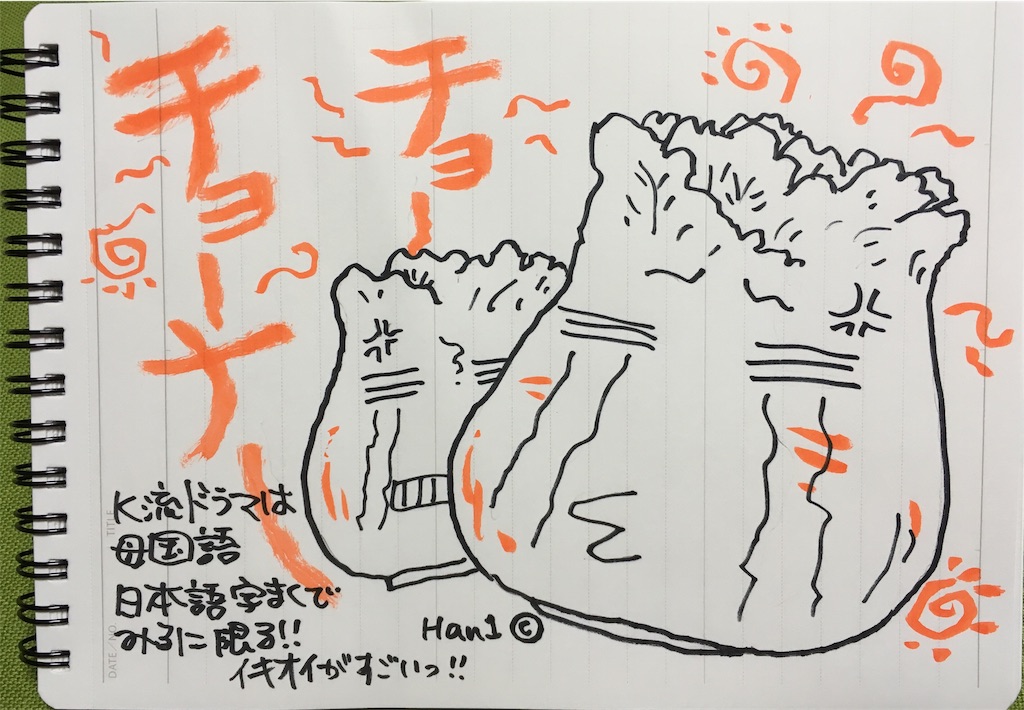 チョー
チョーナー
K流ドラマは
母国語
日本語字まくで
みるに限る!!
イキオイがすごいっ!!
Han1 ©
TITLE
DATE / NO.